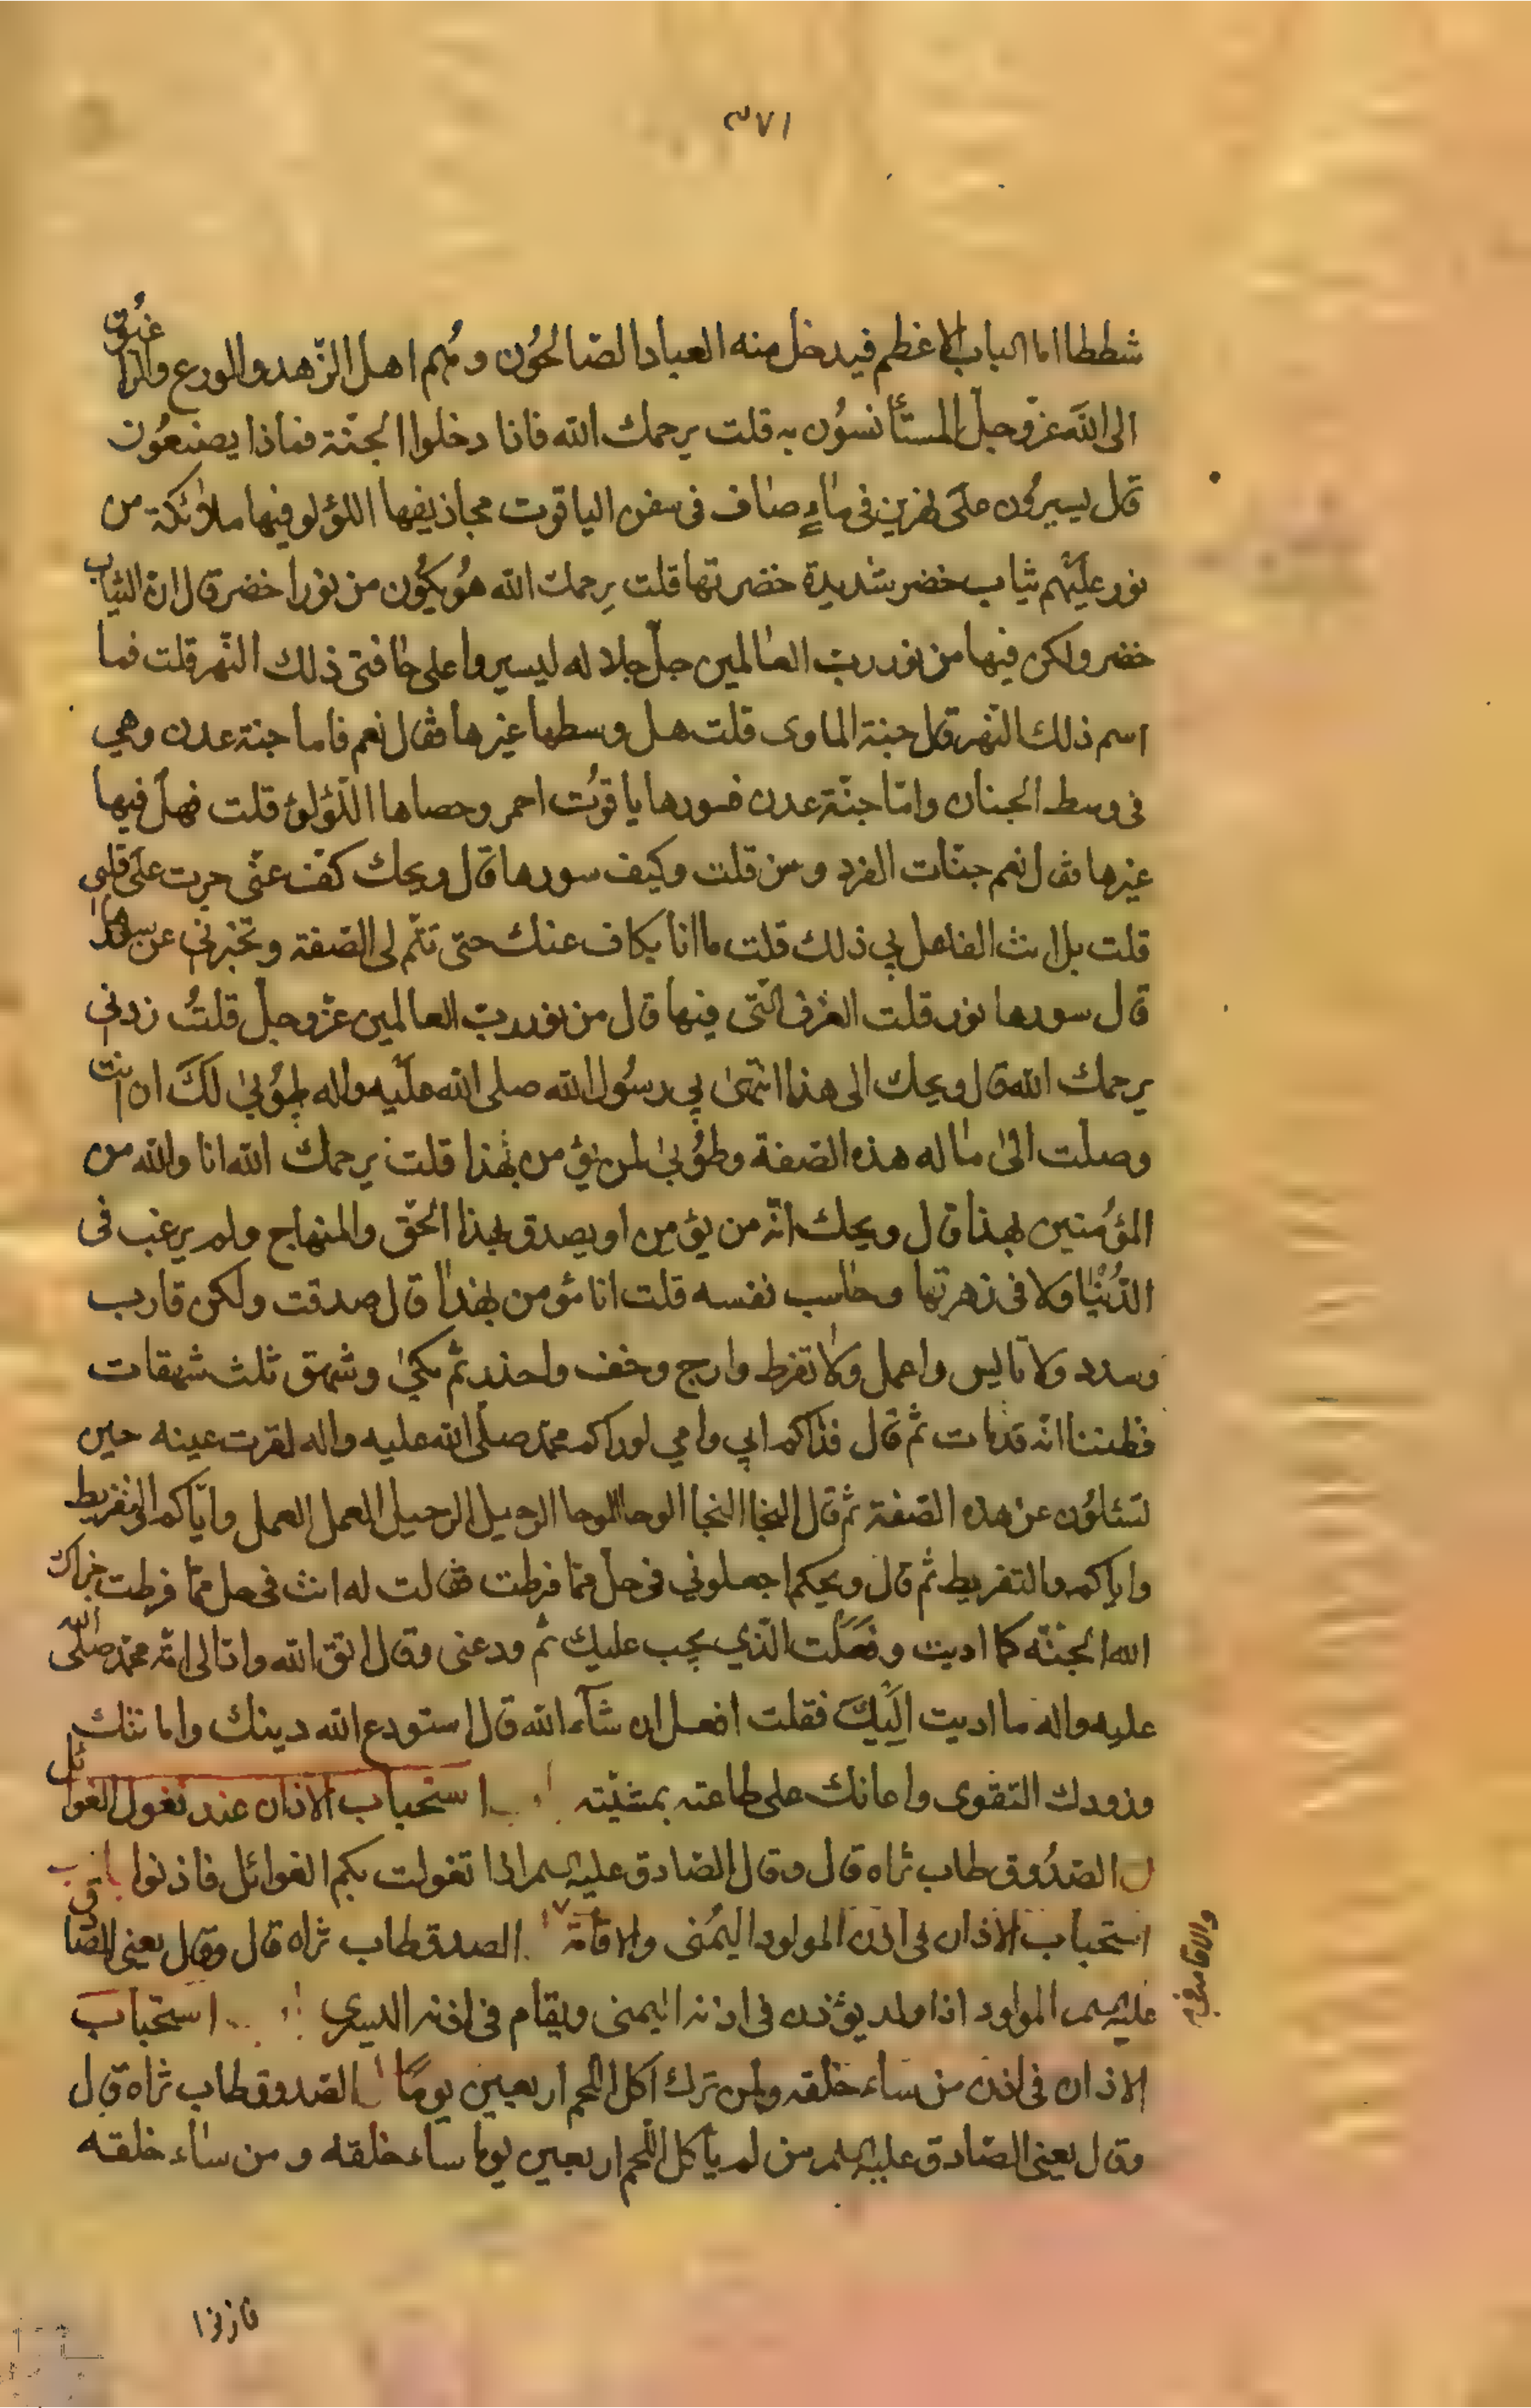 ٣٧١
شططا اما الباب الاعظم فيدخل منه العباد الصّالحُون وهُم اهل الزّهد والورع والراغبُون
الى اللّه عزّوجلّ المستأنسُون به قلت يرحمك اللّه فاذا دخلوا الجنّة فماذا يصنعُون
قال يسيرُون على نهرين فى ماءٍ صاف فى سفن الياقوت مجاذيفها اللؤلو فيها ملائكة من
نور عليهم ثياب خضر شديدة خضرتها قلت يرحمك اللّه هُو يكُون من نور اخضر قال ان الثياب
خضر ولكن فيها من نور ربّ العالمين جلّ جلاله ليسيروا على حافتى ذلك النّهر قلت فما
اسم ذلك النّهر قال جنة الماوى قلت هل وسطها غيرها فقال نعم فاما جنة عدن وهي
فى وسط الجنان وامّا جنّة عدن فسورها ياقوُت احمر وحصاها اللّؤلؤ قلت فهل فيها
غيرها فقال نعم جنّات الفردوس قلت وكيف سورها قال ويحك كفّ عنّى جرت على قلبى
قلت بل انت الفاعل بي ذلك قلت ما انا بكاف عنك حتى تتّم لى الصّفة وتخبرني عن سورها
قال سورها نور قلت الغرف الّتى فيها قال من نور ربّ العالمين عزّوجلّ قلتُ زدنى
يرحمك اللّه قال ويحك الى هذا انتهى بي رسُول اللّه صلى اللّه عليه واله طُوبى لكَ ان انت
وصلت الى ما له هذه الصّفة وطُوبى لمن يؤمن بهذا قلت يرحمك اللّه انا واللّه من
المؤمنين بهذا قال ويحك انّه من يؤمن او يصدق بهذا الحقّ والمنهاج ولم يرغب فى
الدُّنيا ولا فى زهرتها وحاسب نفسه قلت انا مؤمن بهذا قال صدقت ولكن قارب
وسدد ولا تايس واعمل ولا تفرط وارج وخف واحذر ثم بكى وشهق ثلث شهقات
فظننا انّه قد مات ثمّ قال فداكم ابي وامي لو راكم محمّد صلّى اللّه عليه واله لقرت عينه حين
تسئلوُن عن هذه الصّفة ثم قال النجا النجا الوحا الوحا الرحيل الرحيل العمل العمل واياكم والتفريط
واياكم والتفريط ثم قال ويحكم اجعلوني فى حلّ ممّا فرطت فقالت له انت فى حل ممّا فرطت جزاك
اللّه الجنّة كما اديت وفَعَلت الّذي يجب عليك ثم ودعنى وقال اتق اللّه وادّ الى امّة محمّد صلّى اللّه
عليه واله ما اديت اليك فقلت افعل ان شآء اللّه قال استودع اللّه دينك وامانتك
وزودك التقوى واعانك على طاعته بمشيّته استحباب الاذان عند تغول الغوائل
الصّدُوق طاب ثراه قال وقال الصّادق عليه السلم اذا تغولت بكم الغوائل فاذنوا
استحباب الاذان فى اذن المولود اليُمنى والاقامة الصدوق طاب ثراه قال وقال يعنى الصّادق
عليه السلم المولود اذا ولد يؤذن فى اذنه اليمنى ويقام فى اذنه اليسرى استحباب
الاذان فى اذن من ساء خلقه ولمن ترك اكل اللحم اربعين يومًا الصّدوق طاب ثراه قال
وقال يعنى الصّادق عليه السلم من لم يأكل اللّحم اربعين يوما ساء خلقه ومن ساء خلقه
فاذنوا